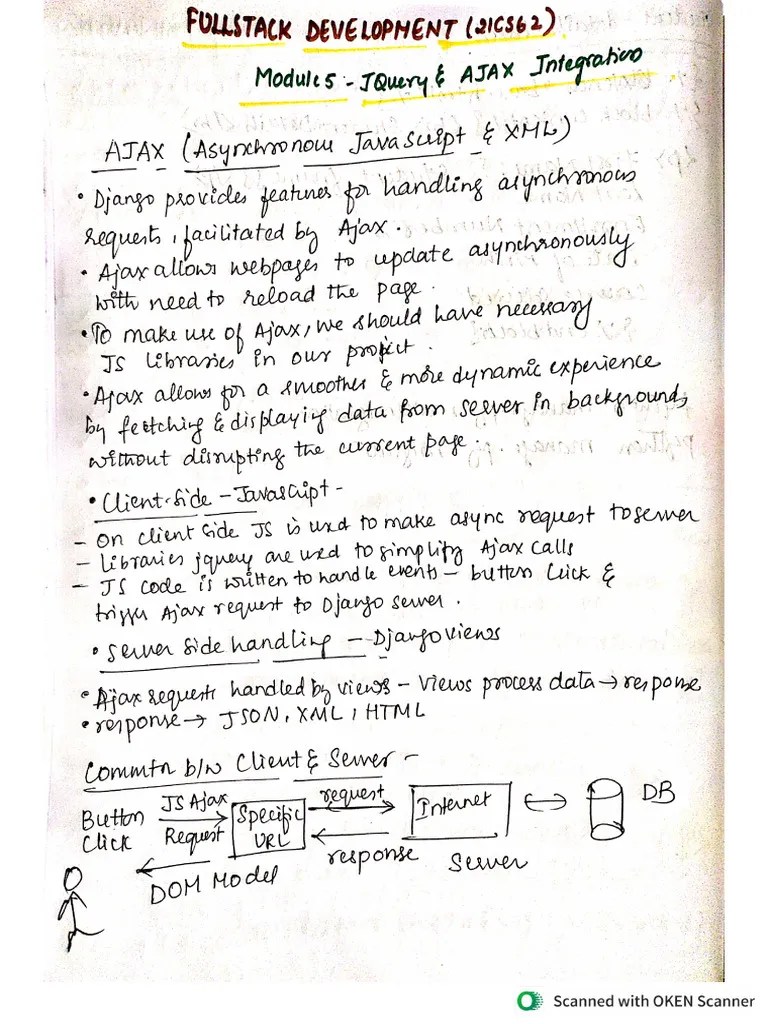 FULLSTACK DEVELOPMENT (21CS62)
Module 5 - JQuery & AJAX Integration
AJAX (Asynchronous JavaScript & XML)
• Django provides features for handling asynchronous
requests, facilitated by Ajax.
• Ajax allows webpages to update asynchronously
with need to reload the page.
• To make use of Ajax, we should have necessary
JS libraries in our project.
• Ajax allows for a smoother & more dynamic experience
by fetching & displaying data from server in background,
without disrupting the current page.
• Client-side - JavaScript -
- On client side JS is used to make async request to server
- Libraries jquery are used to simplify Ajax calls
- JS code is written to handle events - button click &
trigger Ajax request to Django server.
• Server side handling - Django views
• Ajax requests handled by views - views process data → response
• response → JSON, XML, HTML
Commtn b/w Client & Server -
Button Click
JS Ajax Request
Specific URL
request
response
Internet
Server
DB
DOM Model
Scanned with OKEN Scanner